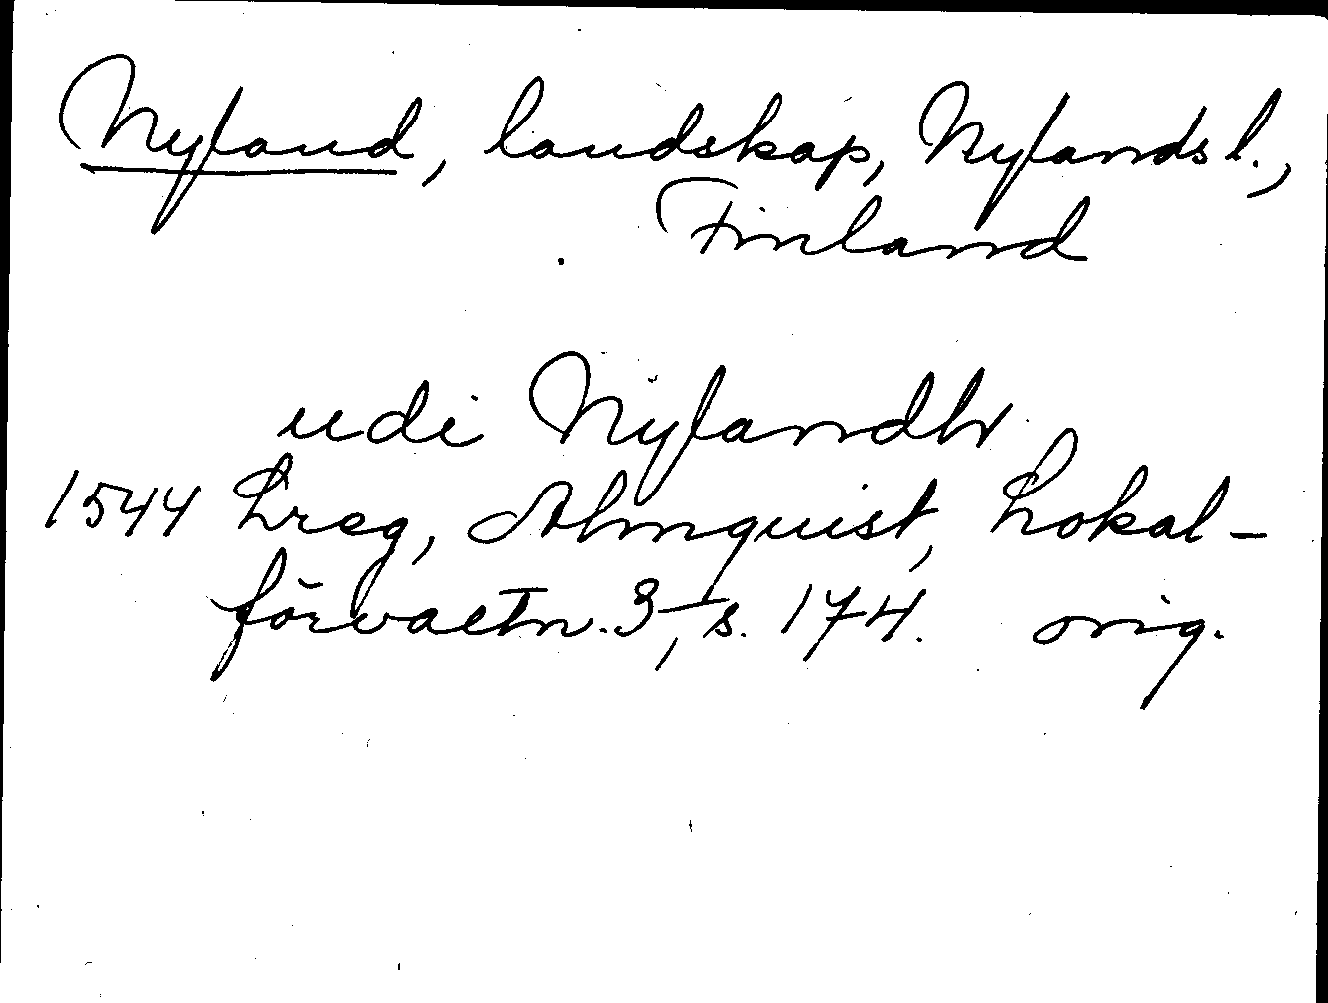 Nyland, landskap, Nylands l.,
Finland
udi Nylandh
1544 Lreg, Almquist, Lokal-
förvaltn. 3, s. 174. orig.